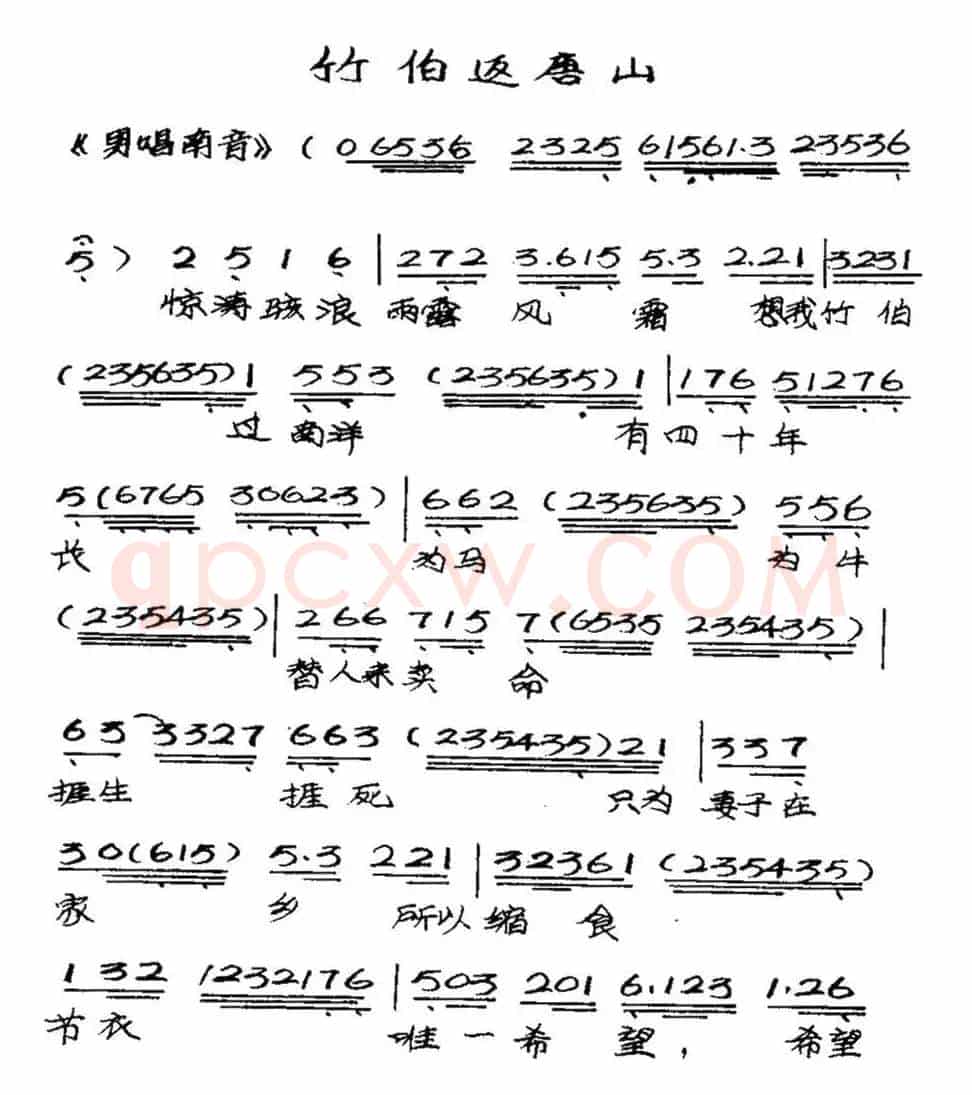 竹伯返唐山
《男唱南音》( 0 6536 2325 61561.3 23536
5 ) 2 5 1 6 | 272 3.615 5.3 2.21 | 3231
惊涛骇浪 雨露 风 霜 想我竹 伯
(235635)1 553 (235635)1 | 176 51276
过 南洋 有四十年
5(6765 30623) | 662 (235635) 556
长 为马 为牛
qpcxw.COM
(235435) | 266 715 7(6535 235435) |
替人来卖 命
63 3327 663 (235435)21 | 337
捱生 捱死 只为 妻子在
30(615) 5.3 221 | 32361 (235435)
家 乡 所以缩 食
132 1232176 | 503 201 6.123 1.26
节衣 唯一希 望, 希望